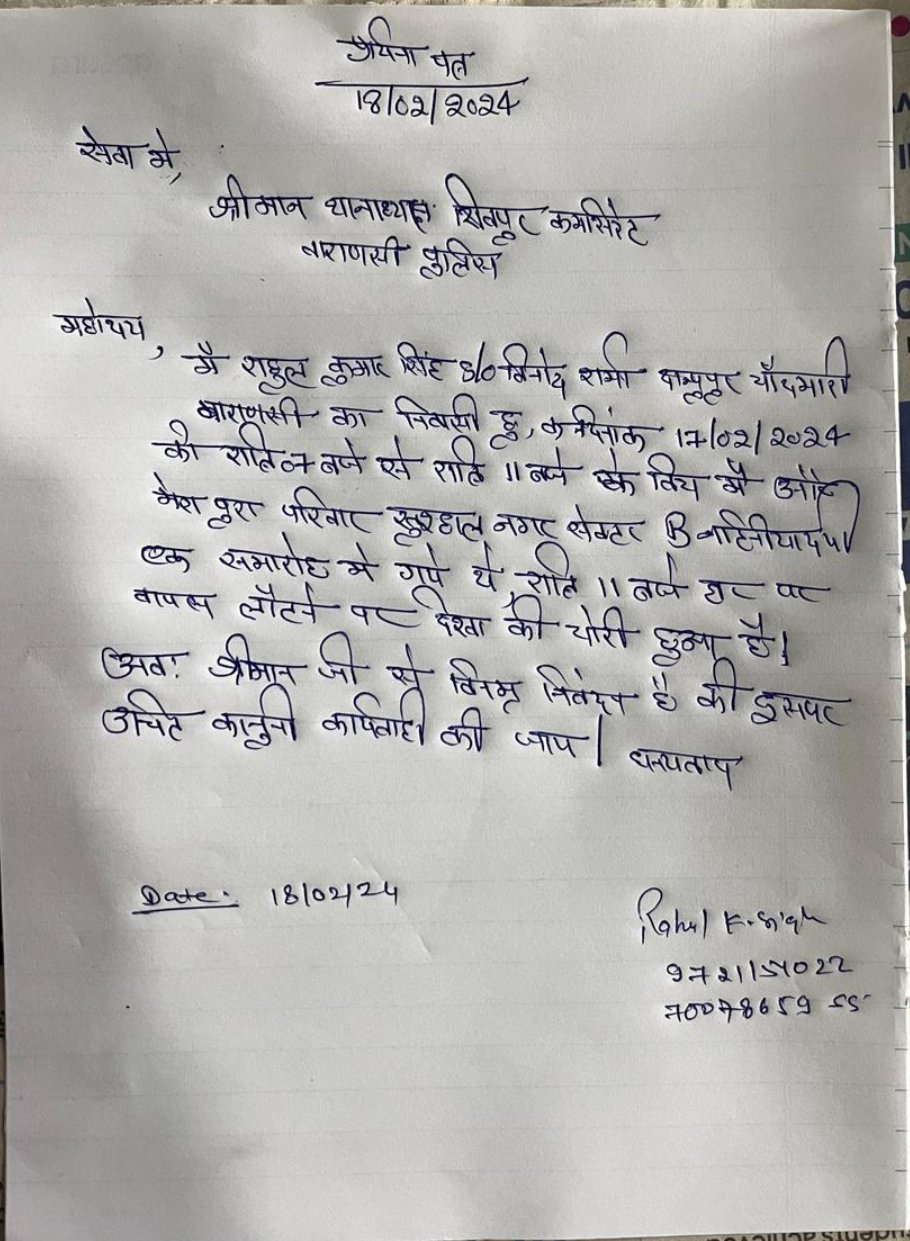 प्रार्थना पत्र
18/02/2024
सेवा मे,
श्रीमान थानाध्यक्ष शिवपुर कमसिरेट
वाराणसी पुलिस
महोदय,
मै राहुल कुमार सिंह S/o विनोद शर्मा चाँदमारी
वाराणसी का निवासी हु, दिनांक 17/02/2024
की रात्रि 07 बजे से रात्रि 11 बजे के बिच मै और
मेरा पुरा परिवार खुशहाल नगर सेक्टर B
एक समारोह मे गये थे, रात्रि 11 बजे घर पर
वापस लौटने पर देखा की चोरी हुआ है।
अतः श्रीमान जी से विनम्र निवेदन है की इसपर
उचित कानुनी कार्यवाही की जाय। धन्यवाद
Date: 18/02/24
Rahul K. Singh